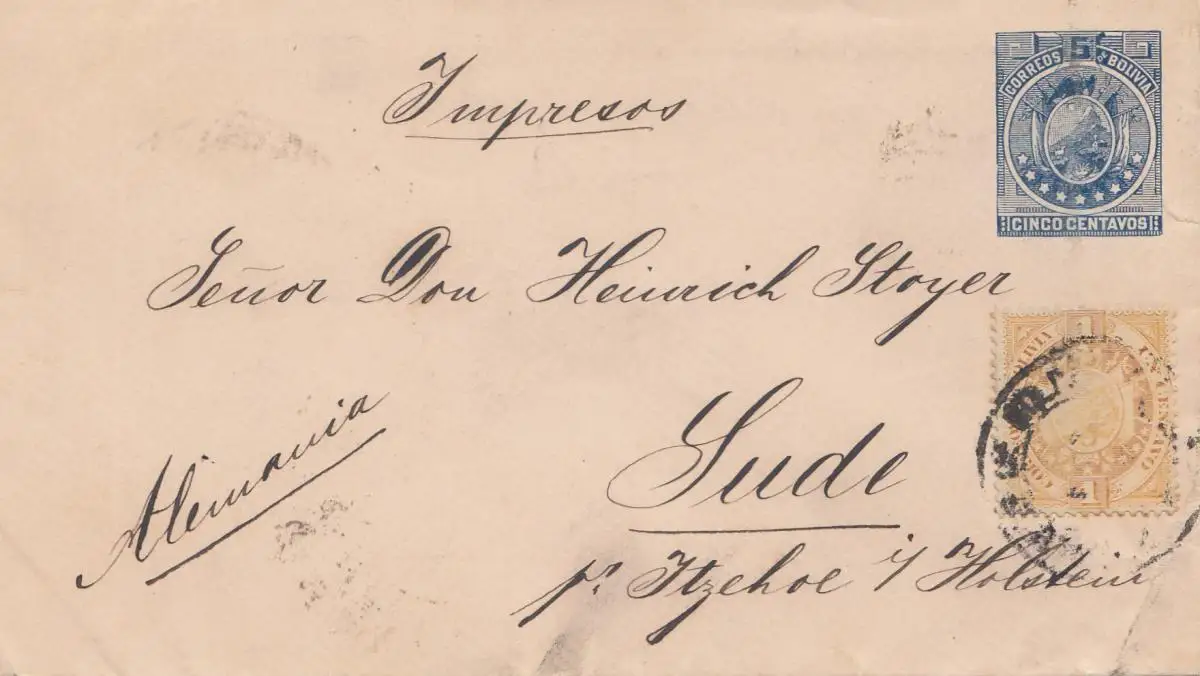 Impresos
5
CORREOS DE BOLIVIA
CINCO CENTAVOS
Señor Don Heinrich Stoyer
1
UN CENTAVO
1
Sude
Alemania
pr Itzehoe i/ Holstein